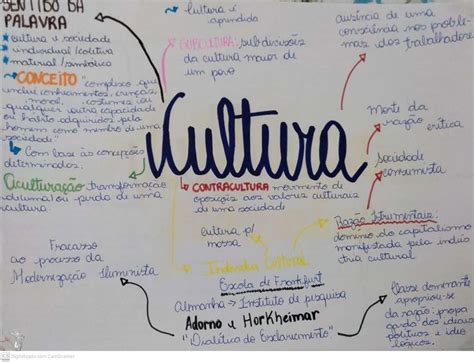 SENTIDO DA
PALAVRA
* cultura e sociedade
* individual/coletiva
* material/simbólica
~CONCEITO "complexo que
inclui conhecimentos, crenças,
moral, costumes ou
qualquer outra capacidade
ou hábito adquiridos pelo
homem como membro de uma
sociedade"
~ Com base às concepções
determinadas.
Aculturação transformação
ou perda de uma
cultura.
~ Cultura é
aprendida
SUBCULTURA: subdivisões
da cultura maior de
um povo
Cultura
↳ CONTRACULTURA movimento de
oposição aos valores culturais
de uma sociedade
cultura p/
massa
Indústria Cultural
Escola de Frankfurt
Alemanha → Instituto de pesquisa
Adorno e Horkheimer
"Dialética do Esclarecimento"
Fracasso
ao processo da
Modernização Iluminista
ausência de uma
consciência nos proble-
mas dos trabalhadores
Morte da
razão crítica
Sociedade
consumista
Razão Intrumental:
domínio do capitalismo
manifestada pela indús
tria cultural
Classe dominante
apropriou-se
da razão, propa
gando dos ideais
políticos e ideo
lógicos.
Digitalizado com CamScanner